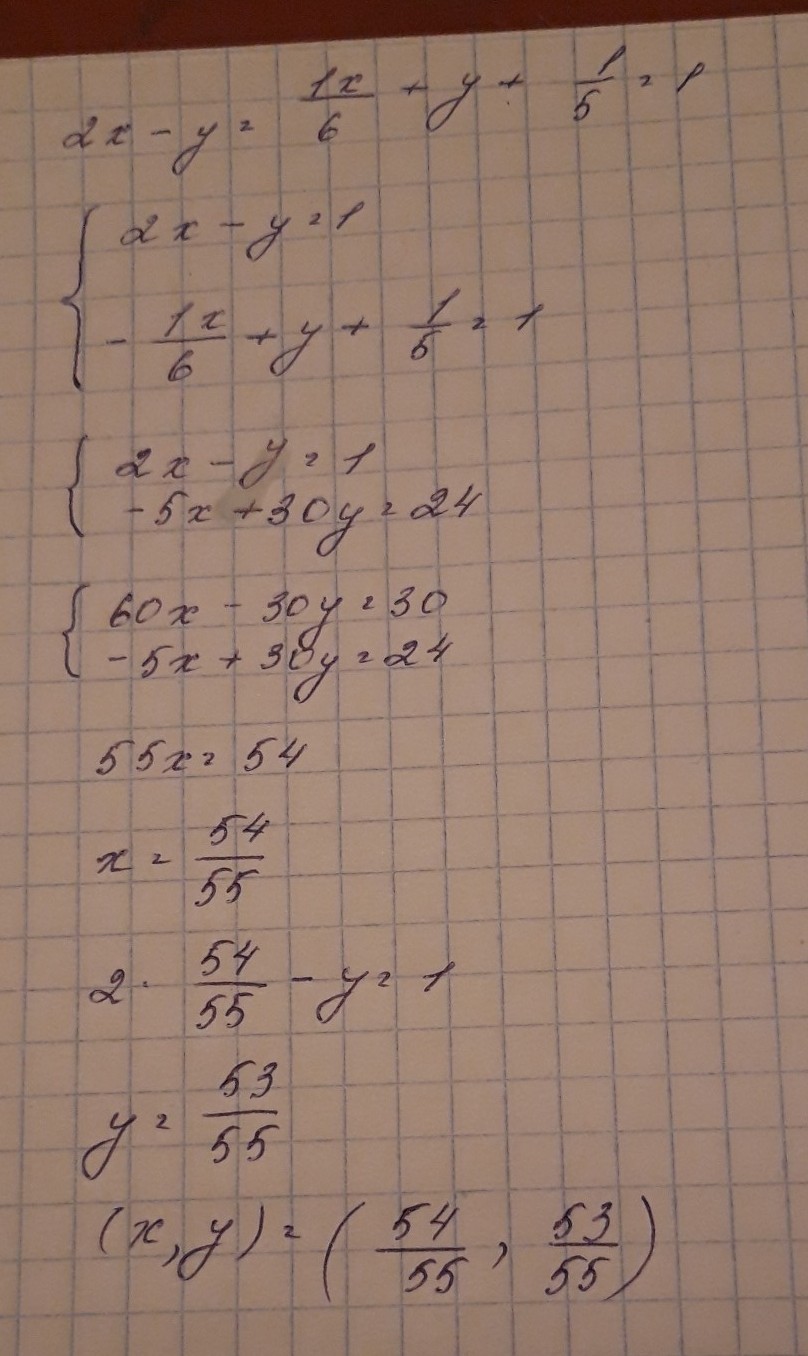 2x - y = 1x/6 + y + 1/5 = 1
{ 2x - y = 1
- 1x/6 + y + 1/5 = 1
{ 2x - y = 1
-5x + 30y = 24
{ 60x - 30y = 30
-5x + 30y = 24
55x = 54
x = 54/55
2 · 54/55 - y = 1
y = 53/55
(x, y) = (54/55, 53/55)